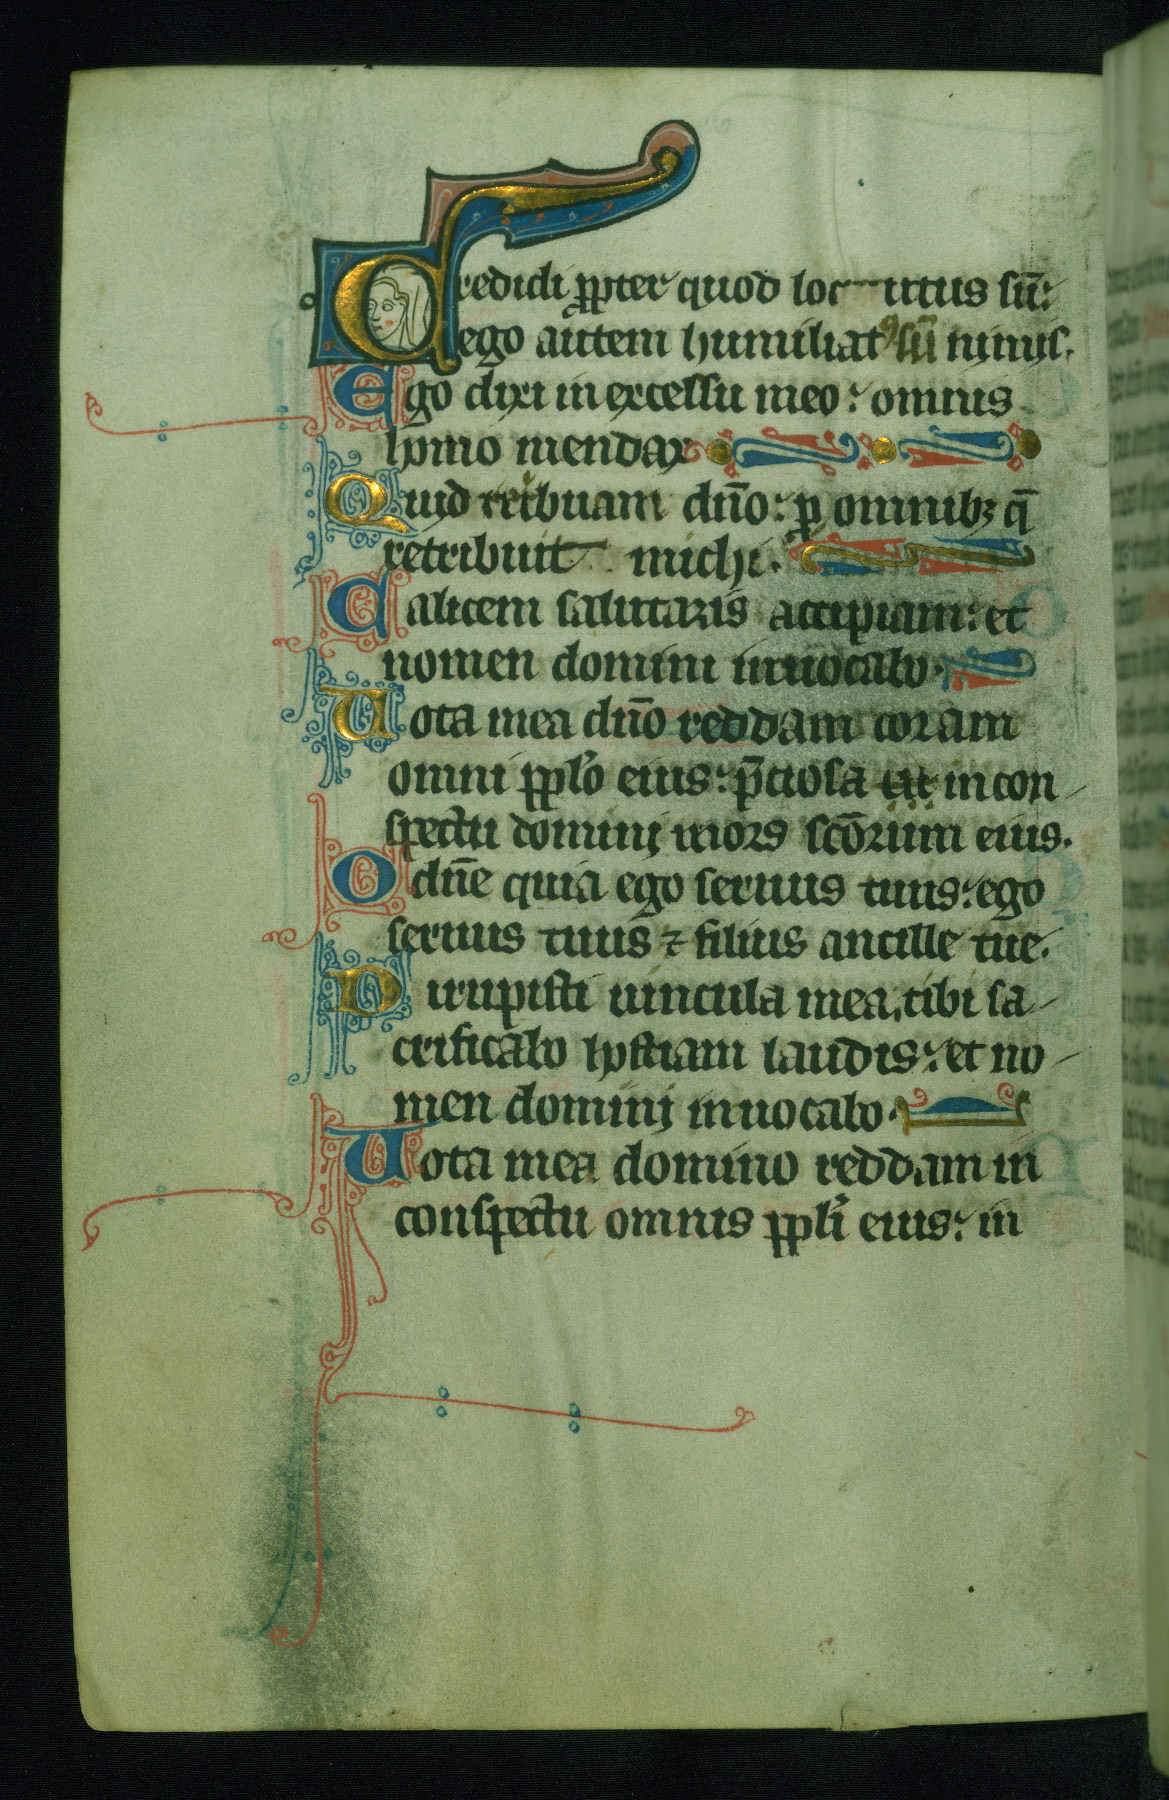 Credidi ꝓpter quod loc utus sū:
ego autem humiliatꝰ sū nimis.
Ego dixi in excessu meo: omnis
homo mendax
Quid tribuam dño: ꝓ omnibꝫ q̄
retribuit michi.
Calicem salutaris accipiam: et
nomen domini inuocabo.
Uota mea dño reddam coram
omni pplo eius: p̄ciosa est in con
spectu domini mors scōrum eius.
O dñe quia ego seruus tuus: ego
seruus tuus ⁊ filius ancille tue.
Dirupisti uincula mea, tibi sa
crificabo hostiam laudis: et no
men domini inuocabo.
Uota mea domino reddam in
conspectu omnis ppli eius: in